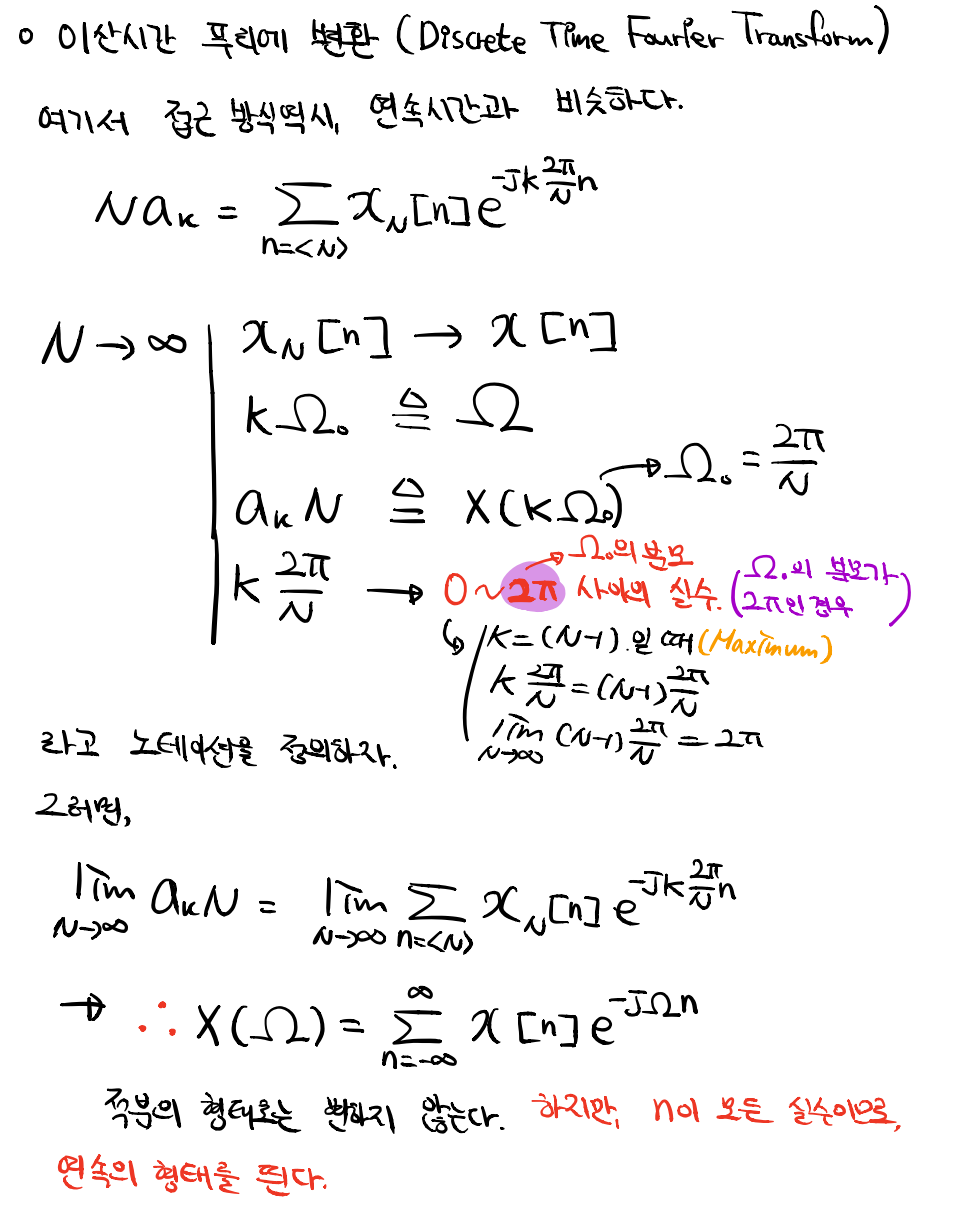 o 이산시간 푸리에 변환 (Discrete Time Fourier Transform)
여기서 접근 방식역시, 연속시간과 비슷하다.
Naₖ = Σ_{n=<N>} x_N[n]e^{-jk\frac{2π}{N}n}
N→∞ | x_N[n] → x[n]
kΩ₀ ≜ Ω
aₖN ≜ X(kΩ₀) → Ω₀ = \frac{2π}{N}
Ω₀의 분모
k\frac{2π}{N} → 0~2π 사이의 실수. (Ω₀의 분모가 2π인 경우)
↳ K=(N-1).일 때 (Maximum)
k\frac{2π}{N} = (N-1)\frac{2π}{N}
lim_{N→∞} (N-1)\frac{2π}{N} = 2π
라고 노테이션을 정의하자.
그러면,
lim_{N→∞} aₖN = lim_{N→∞} Σ_{n=<N>} x_N[n]e^{-jk\frac{2π}{N}n}
→ ∴ X(Ω) = Σ_{n=-∞}^{∞} x[n]e^{-jΩn}
적분의 형태로는 변하지 않는다. 하지만, n이 모든 실수이므로,
연속의 형태를 띈다.